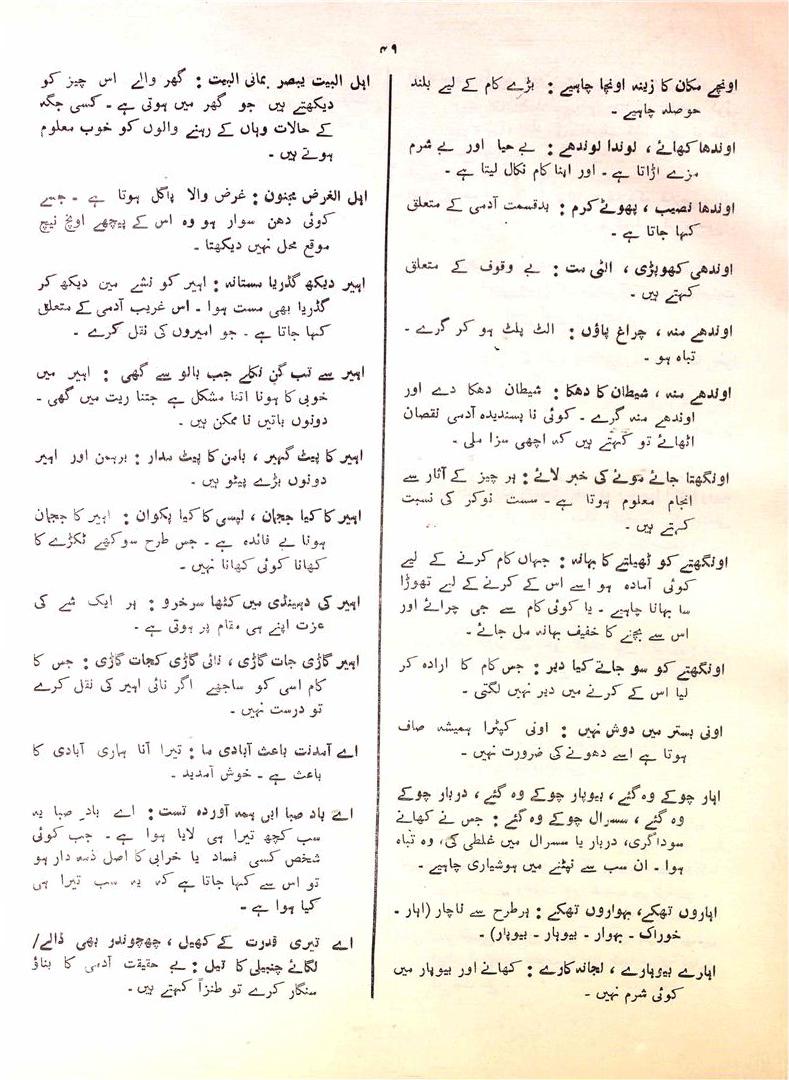 ۴۹
اونچے مکان کا زینہ اونچا چاہیے : بڑے کام کے لیے بلند
حوصلہ چاہیے ۔
اوندھا کھائے ، لوندا لوندھے : بے حیا اور بے شرم
مزے اڑاتا ہے ۔ اور اپنا کام نکال لیتا ہے ۔
اوندھا نصیب ، پھوٹے کرم : بدقسمت آدمی کے متعلق
کہا جاتا ہے ۔
اوندھی کھوپڑی ، الٹی مت : بے وقوف کے متعلق
کہتے ہیں ۔
اوندھے منہ ، چراغ پاؤں : الٹ پلٹ ہو کر گرے ۔
تباہ ہو ۔
اوندھے منہ ، شیطان کا دھکا : شیطان دھکا دے اور
اوندھے منہ گرے ۔ کوئی نا پسندیدہ آدمی نقصان
اٹھائے تو کہتے ہیں کہ اچھی سزا ملی ۔
اونگھتا جائے موئے کی خبر لائے : ہر چیز کے آثار سے
انجام معلوم ہوتا ہے ۔ سست نوکر کی نسبت
کہتے ہیں ۔
اونگھتے کو ٹھیلتے کا بہانہ : جہاں کام کرنے کے لیے
کوئی آمادہ ہو اسے اس کے کرنے کے لیے تھوڑا
سا بہانا چاہیے ۔ یا کوئی کام سے جی چرائے اور
اس سے بچنے کا خفیف بہانہ مل جائے ۔
اونگھتے کو سو جاتے کیا دیر : جس کام کا ارادہ کر
لیا اس کے کرنے میں دیر نہیں لگتی ۔
اونی بستر میں دوش نہیں : اونی کپڑا ہمیشہ صاف
ہوتا ہے اسے دھونے کی ضرورت نہیں ۔
اہار چوکے وہ گئے ، بیوپار چوکے وہ گئے ، دربار چوکے
وہ گئے ، سسرال چوکے وہ گئے : جس نے کھانے
سوداگری، دربار یا سسرال میں غلطی کی، وہ تباہ
ہوا ۔ ان سب سے نپٹنے میں ہوشیاری چاہیے ۔
اہاروں تھکے، بہواروں تھکے : ہرطرح سے ناچار (اہار ۔
خوراک ۔ بہوار ۔ بیوہار ۔ بیوپار) ۔
اہارے بیوہارے ، لجا نہ کارے : کھانے اور بیوپار میں
کوئی شرم نہیں ۔
اہل البیت یبصر بمانی البیت : گھر والے اس چیز کو
دیکھتے ہیں جو گھر میں ہوتی ہے ۔ کسی جگہ
کے حالات وہاں کے رہنے والوں کو خوب معلوم
ہوتے ہیں ۔
اہل الغرض مجنون : غرض والا پاگل ہوتا ہے ۔ جسے
کوئی دھن سوار ہو وہ اس کے پیچھے اونچ نیچ
موقع محل نہیں دیکھتا ۔
اہیر دیکھ گڈریا مستانہ : اہیر کو نشے مین دیکھ کر
گڈریا بھی مست ہوا ۔ اس غریب آدمی کے متعلق
کہا جاتا ہے ۔ جو امیروں کی نقل کرے ۔
اہیر سے تب گن نکلے جب بالو سے گھی : اہیر میں
خوبی کا ہونا اتنا مشکل ہے جتنا ریت میں گھی ۔
دونوں باتیں نا ممکن ہیں ۔
اہیر کا پیٹ گہیر ، بامن کا پیٹ مدار : برہمن اور اہیر
دونوں بڑے پیٹو ہیں ۔
اہیر کا کیا ججان ، لپسی کا کیا پکوان : اہیر کا ججان
ہونا بے فائدہ ہے ۔ جس طرح سوکھے ٹکڑے کا
کھانا کوئی کھانا نہیں ۔
اہیر کی دہینڈی میں کٹھا سرخرو : ہر ایک شے کی
عزت اپنے ہی مقام پر ہوتی ہے ۔
اہیر گاڑی جات گاڑی ، نائی گاڑی کجات گاڑی : جس کا
کام اسی کو ساجھے اگر نائی اہیر کی نقل کرے
تو درست نہیں ۔
اے آمدنت باعث آبادی ما : تیرا آنا ہماری آبادی کا
باعث ہے ۔ خوش آمدید ۔
اے باد صبا ایں ہمہ آوردہ تست : اے باد صبا یہ
سب کچھ تیرا ہی لایا ہوا ہے ۔ جب کوئی
شخص کسی فساد یا خرابی کا اصل ذمہ دار ہو
تو اس سے کہا جاتا ہے کہ یہ سب تیرا ہی
کیا ہوا ہے ۔
اے تیری قدرت کے کھیل ، چھچوندر بھی ڈالے/
لگائے چنبیلی کا تیل : بے حقیقت آدمی کا بناؤ
سنگار کرے تو طنزاً کہتے ہیں ۔